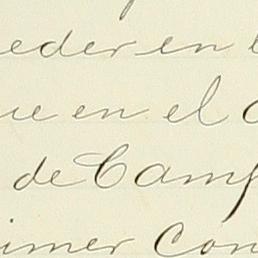 eder en
ue en el
de Camp
imer Con